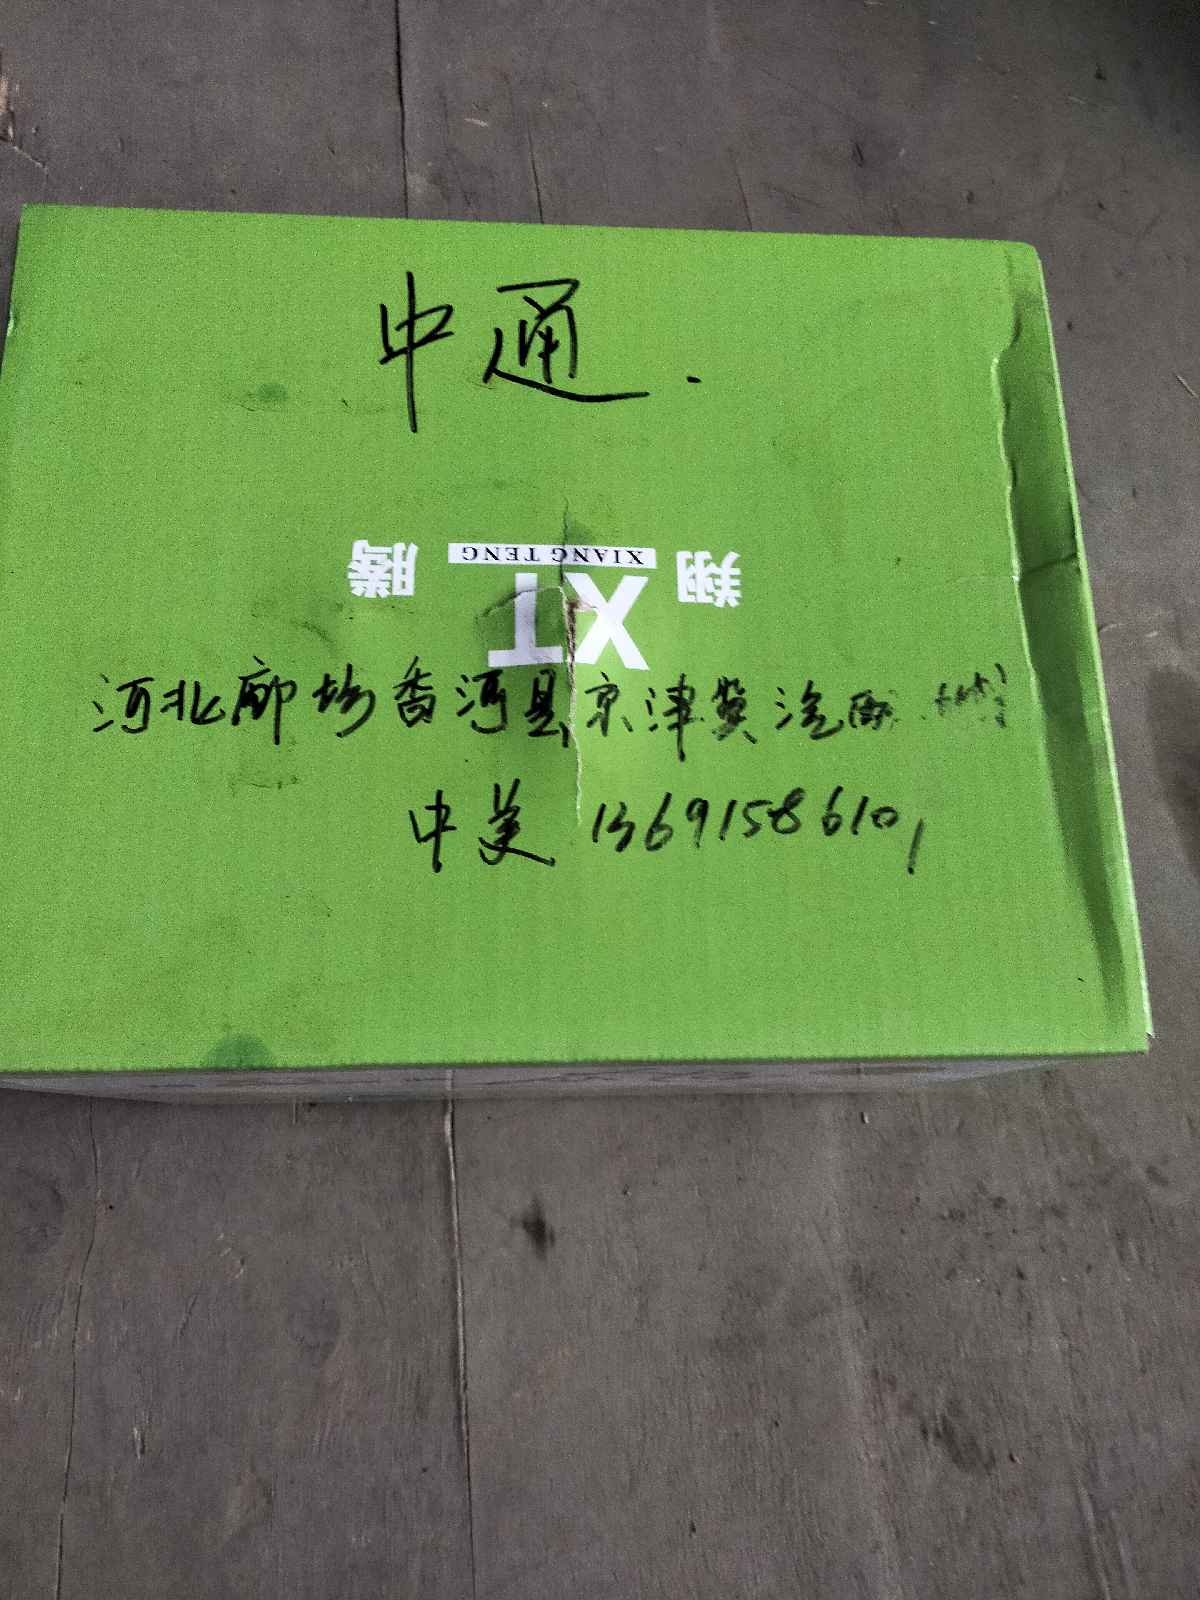 中通.
翔 XIANG TENG 腾
XT
河北廊坊香河县京津冀汽配
中美 13691586101